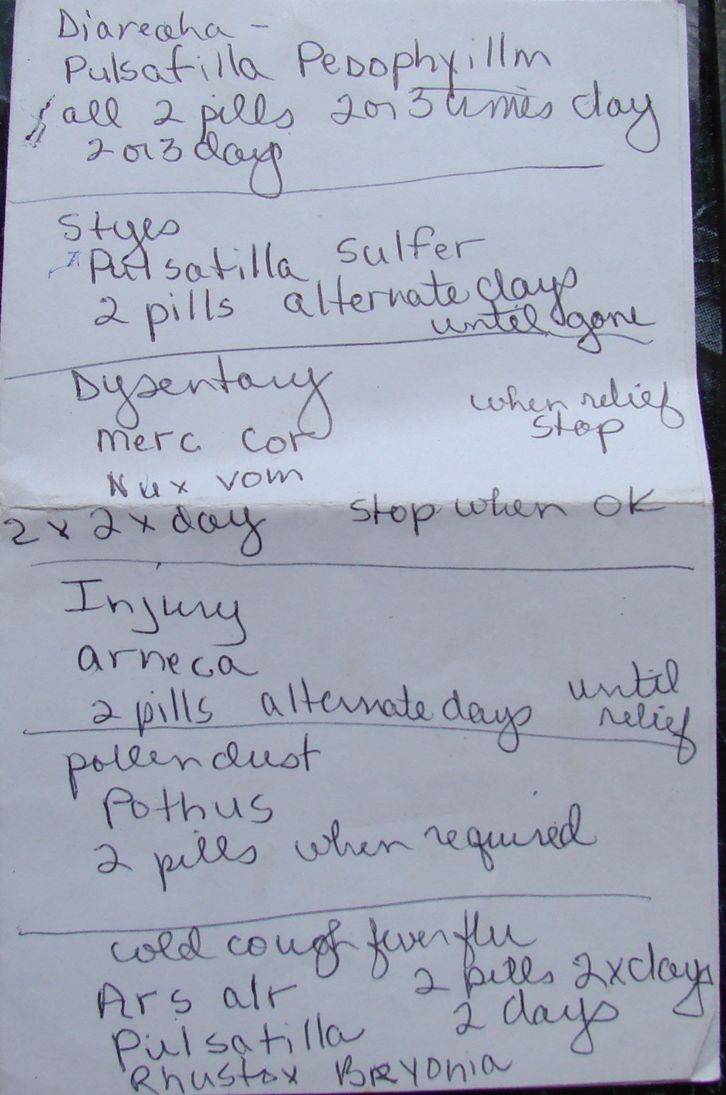 Diareaha -
Pulsatilla Pedophyillm
all 2 pills 2 or 3 times day
2 or 3 days
Styes
Pulsatilla Sulfer
2 pills alternate days
until gone
Dysentary
when relief
merc cor
Stop
Nux vom
2 x 2 x day stop when OK
Injury
arneca
until
2 pills alternate days relief
pollen dust
Pothus
2 pills when required
cold cough fever flu
Ars alr 2 pills 2x days
Pulsatilla 2 days
Rhustox Bryonia